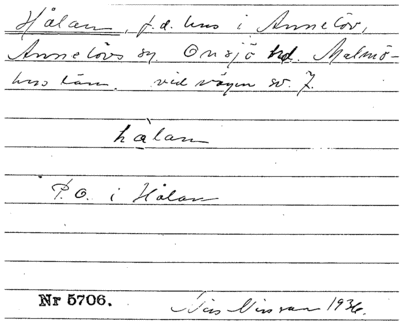 Hålan, f.d. hus i Annelöv,
Annelövs sn. Onsjö hd. Malmö-
hus län. vid vägen sv. 7.
hålan
P.O. i Hålan
Nr 5706. Nils Nilsson 1936.